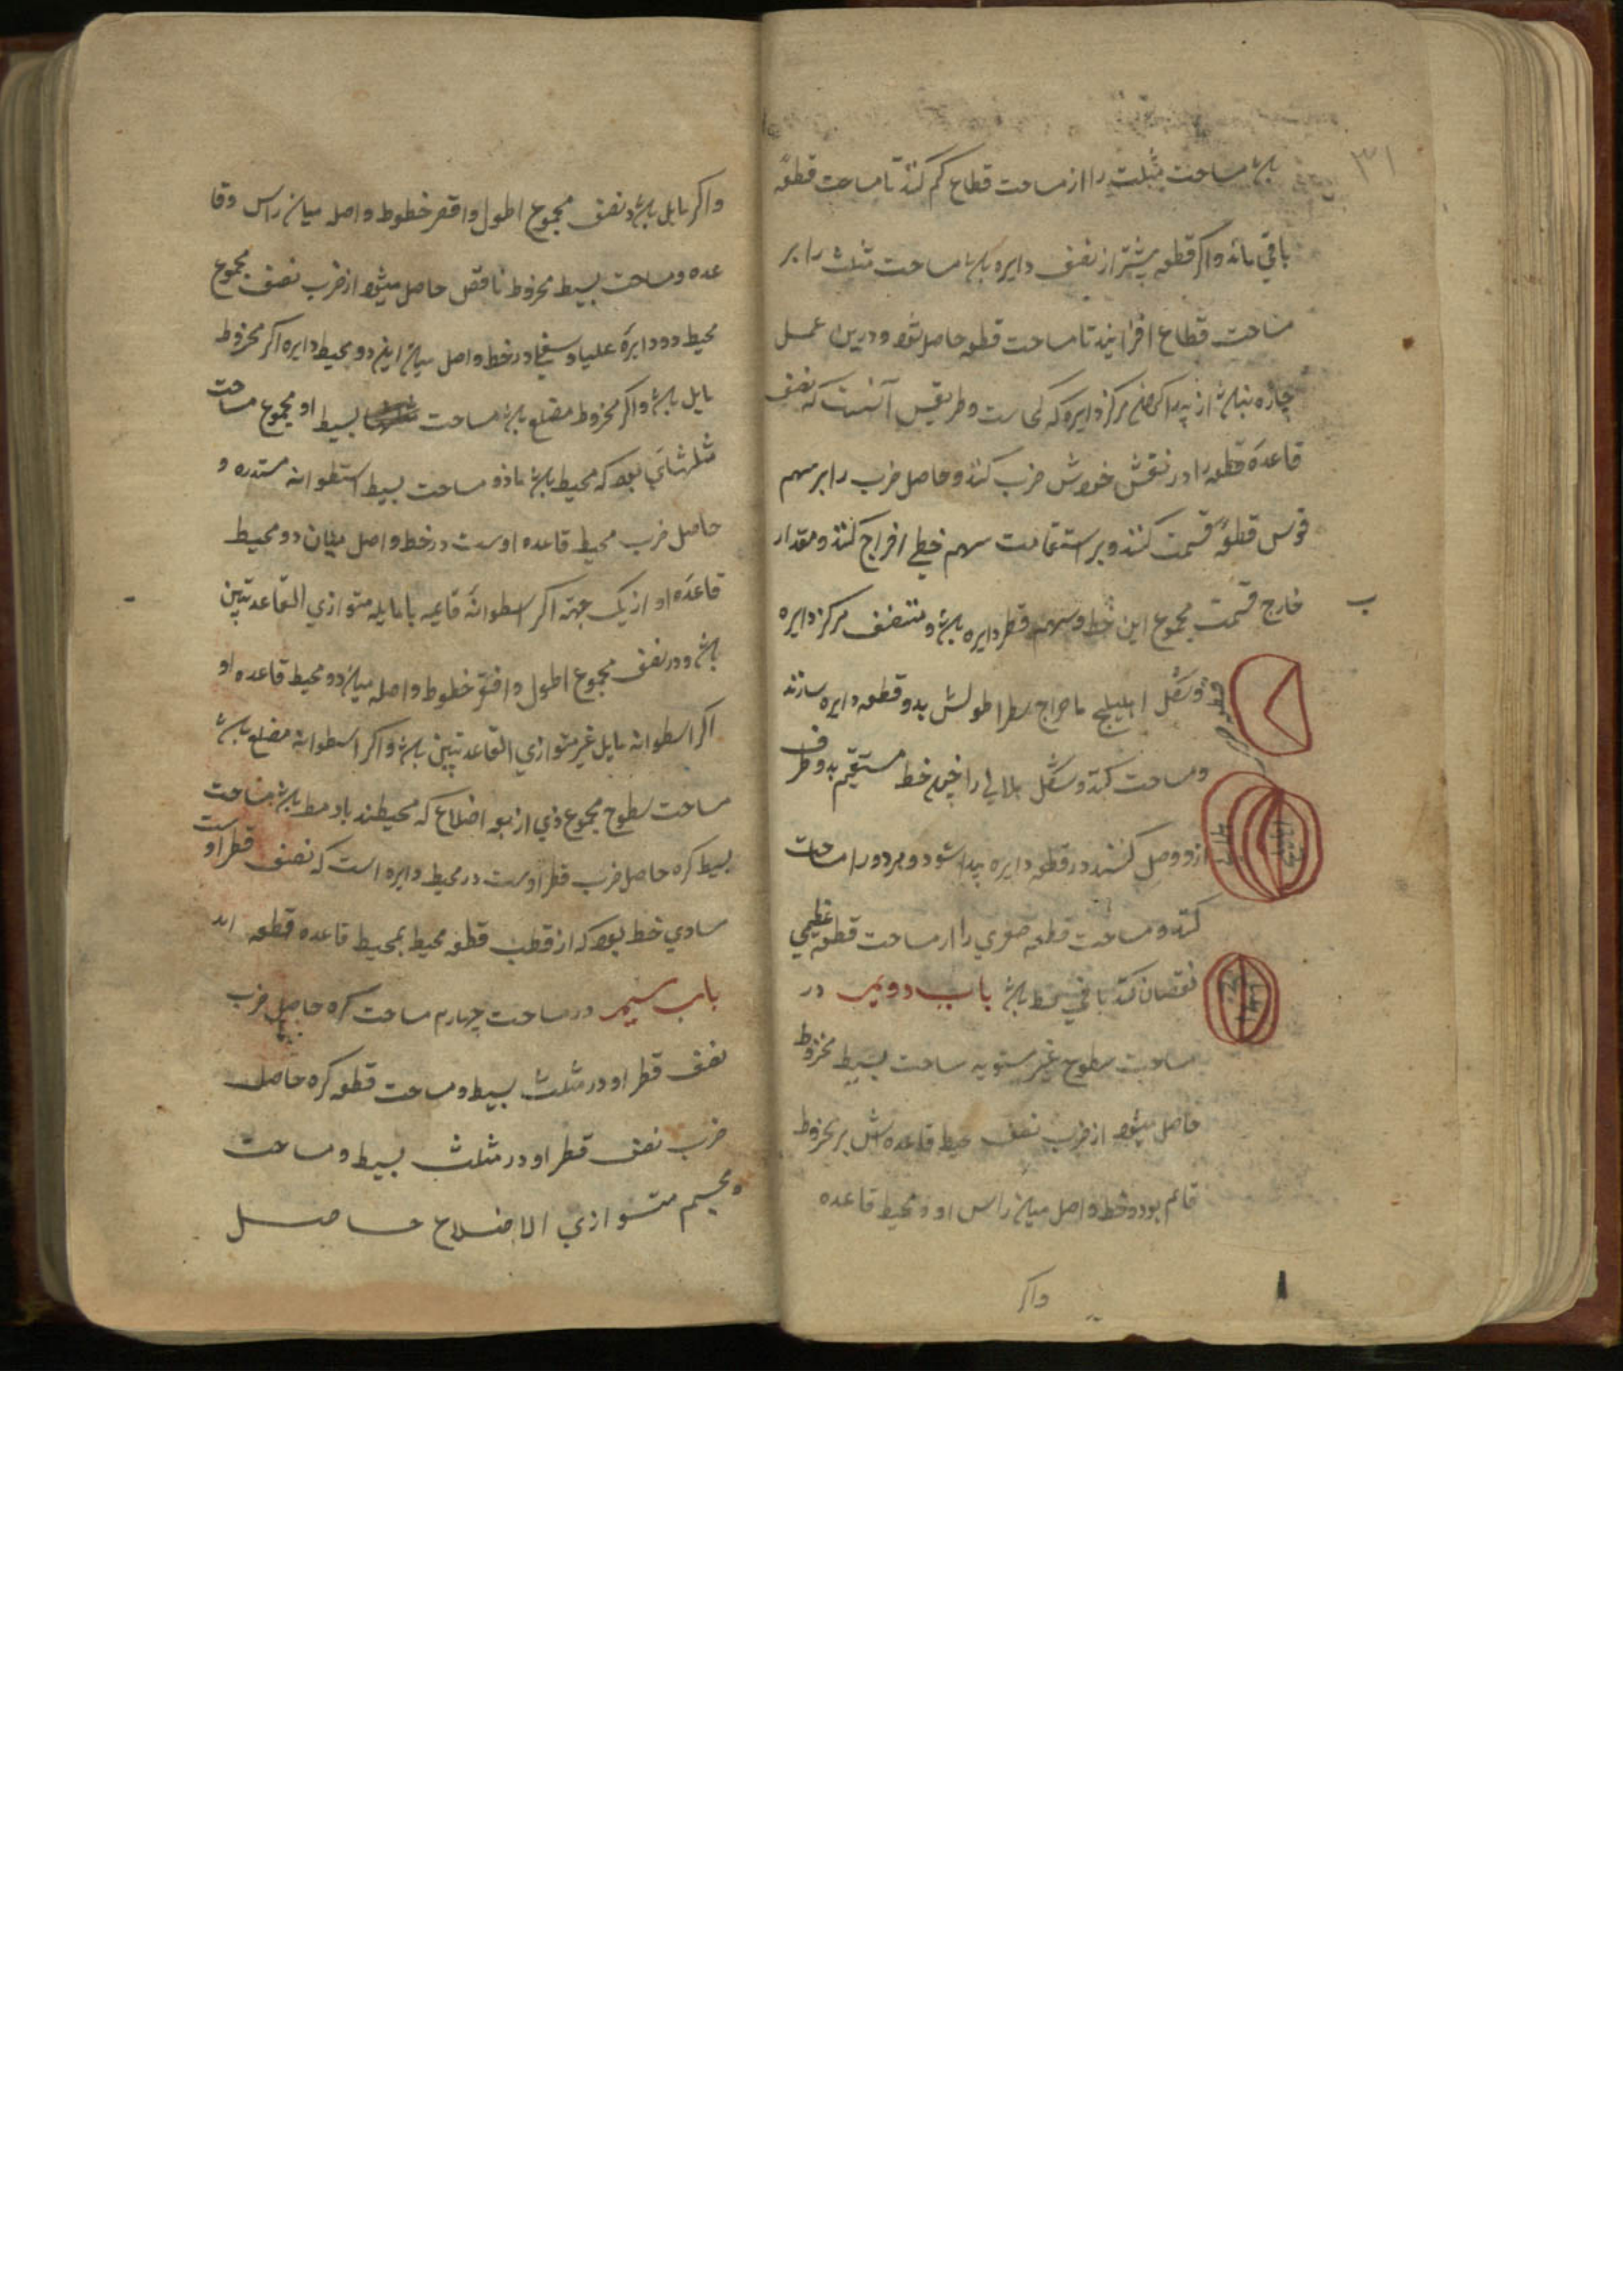 ۳۱
باشد مساحت مثلث را از مساحت قطاع کم کنند تا مساحت قطعه
باقی ماند و اکر قطعه بیشتر از نصف دایره باشد مساحت مثلث را بر
مساحت قطاع افزایند تا مساحت قطعه حاصل شود و درین عمل
چاره نباشد از پیدا کردن مرکز دایره که
و طریقش آنست که نصف
قاعدهٔ قطعه را در نفس خودش ضرب کنند و حاصل ضرب را بر سهم
قوس قطعه قسمت کنند و بر استقامت سهم خطی اخراج کنند و مقدار
خارج قسمت مجموع این خط و سهم قطر دایره باشد و منتصف مرکز دایره
و شکل اهلیلج باخراج قطر اطولش بدو قطعه دایره سازند
و مساحت کنند و شکل هلالی را چون خط مستقیم بدو طرف
ازو وصل کنند دو قطعه دایره پیدا شود و هر دو را مساحت
کنند و مساحت قطعه صغری را از مساحت قطعه عظیمی
نقصان کنند باقی باشد باب دویم در
مساحت سطوح غیر مستویه مساحت بسیط مخروط
حاصل میشود از ضرب نصف محیط قاعده اش بر مخروط
قائم بود و خط واصل میان راس او و محیط قاعده
واکر
واکر مایل باشد و نصف مجموع اطول و اقصر خطوط واصل میان راس و قا
عده و مساحت بسیط مخروط ناقص حاصل میشود از ضرب نصف مجموع
محیط دو دایرهٔ علیا و سفلی در خط واصل میان این دو محیط دایره اکر مخروط
مایل باشد و اکر مخروط مضلع باشد مساحت بسیط او مجموع مساحت
مثلثاتی بود که محیط باشد باو و مساحت بسیط اسطوانه مستدیره و
حاصل ضرب محیط قاعده اوست در خط واصل میان دو محیط
قاعدهٔ او از یک جهة اکر اسطوانهٔ قایمه یا مایله متوازی القاعدتین
باشد و در نصف مجموع اطول و اقصر خطوط واصله میان دو محیط قاعده او
اکر اسطوانه مایل غیر متوازی القاعدتین باشد و اکر اسطوانه مضلع باشد
مساحت سطوح مجموع ذی اربعه اضلاع که محیطند باو باشد مساحت
بسیط کره حاصل ضرب قطر اوست در محیط دایره است که نصف قطر او
مساوی خط بود که از قطب قطعه محیط بمحیط قاعده قطعه
باب سیم در مساحت چهارم مساحت کره حاصل ضرب
نصف قطر او در مثلث بسیط و مساحت قطعه کره حاصل
ضرب نصف قطر او در مثلث بسیط و مساحت
مجسم متوازی الاضلاع حاصل